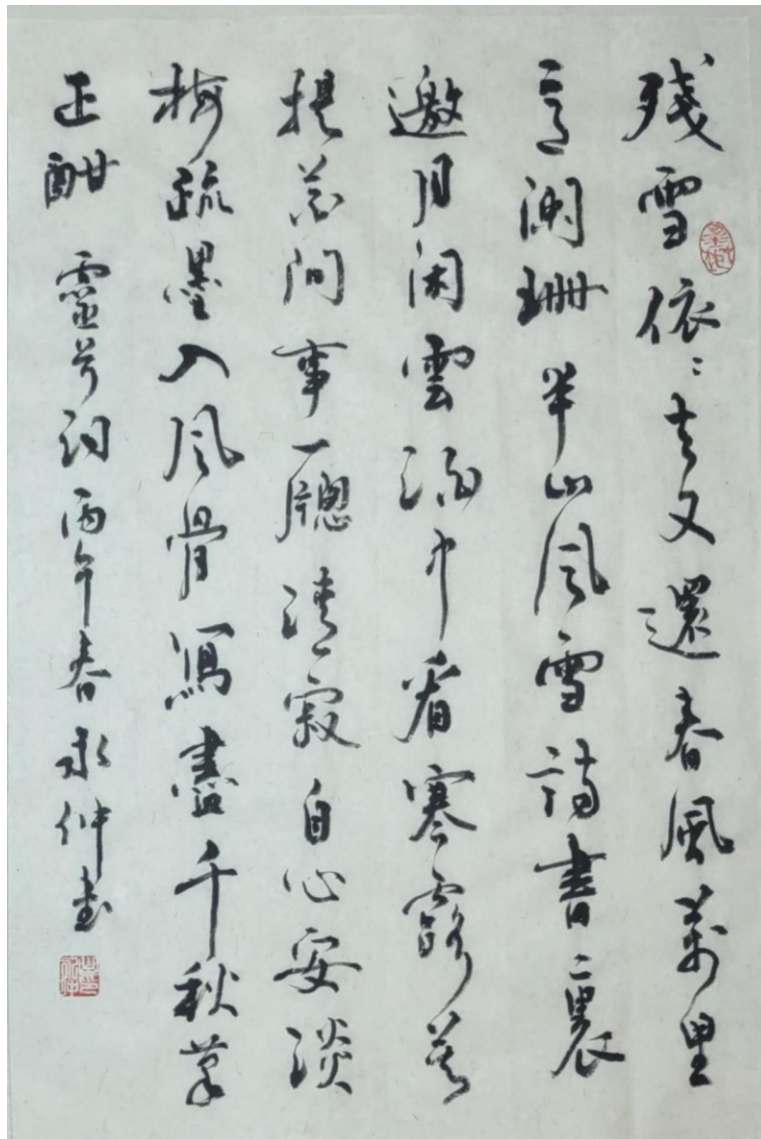 残雪依〻去又還春風萬里
意闌珊半山风雪詩書裏
邀月閑雲酒中看寒露莫
提花間事一牕清寂自心安淡
梅疏墨入风骨寫盡千秋筆
正酣 靈兮詞丙午春永仲書